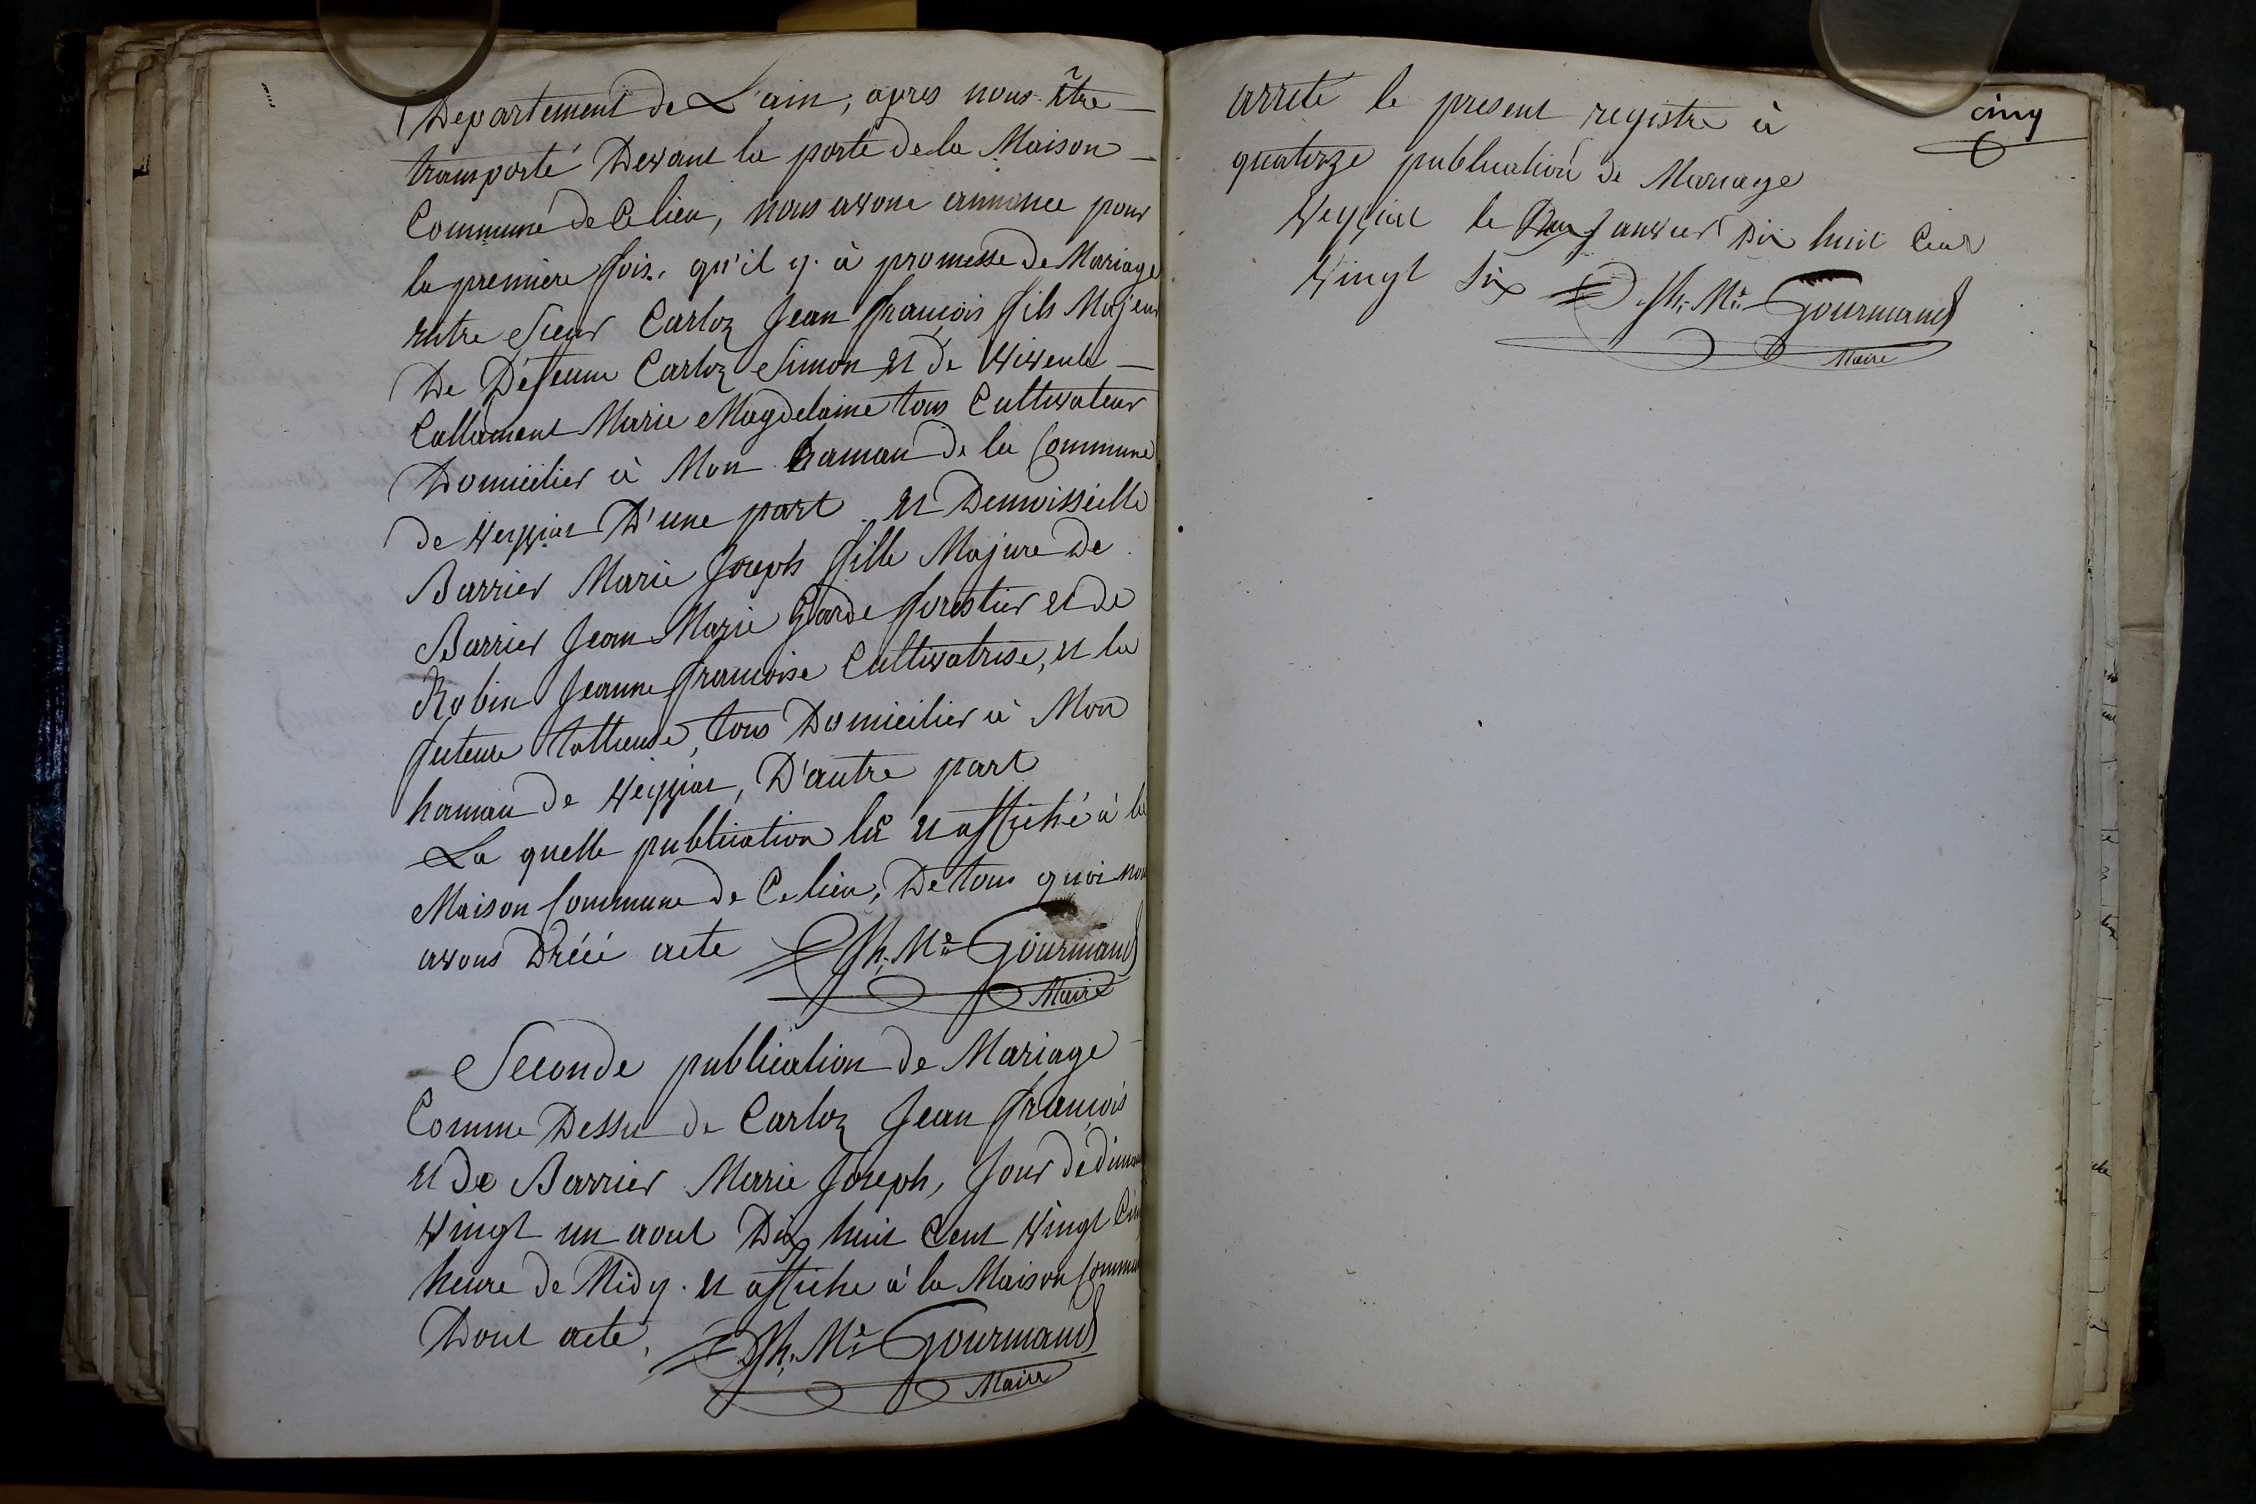 Departement de L'ain, apres nous être
transporté Devant la porte de la Maison
Commune de Ce lieu, nous avons annonce pour
la premiere fois, qu'il y à promesse de Mariage
entre Sieur Carloz Jean françois fils Majeur
De Défeunt Carloz Simon et de vivente
Callament Marie Magdelaine tous Cultivateur
Domicilier à Mon haman de la Commune
de veyziat D'une part et Demoisselle
Barrier Marie Joseph fille Majure De
Barrier Jean Marie Garde forestier et de
Robin Jeanne francoise Cultivatrise, et la
futeure tallieuse, tous Domicilier à Mon
haman de veyziat, D'autre part
La quelle publication lu et affiché à la
Maison Commune de Ce lieu, De tous quoi nous
avons Dréçé acte Jh. Me Gourmand
Maire
Seconde publication de Mariage
Comme Dessu de Carloz Jean françois
et de Barrier Marie Joseph, Jour de diman
vingt un aout Dix huit Cent vingt Cin
heure de Midy. et affiche à la Maison Commu
Dont acte, Jh. Me Gourmand
Maire
cinq
arreté le present registre à
quatorze publication de Mariage
veyziat le Janvier Dix huit Cent
vingt six Jh. Me Gourmand
Maire